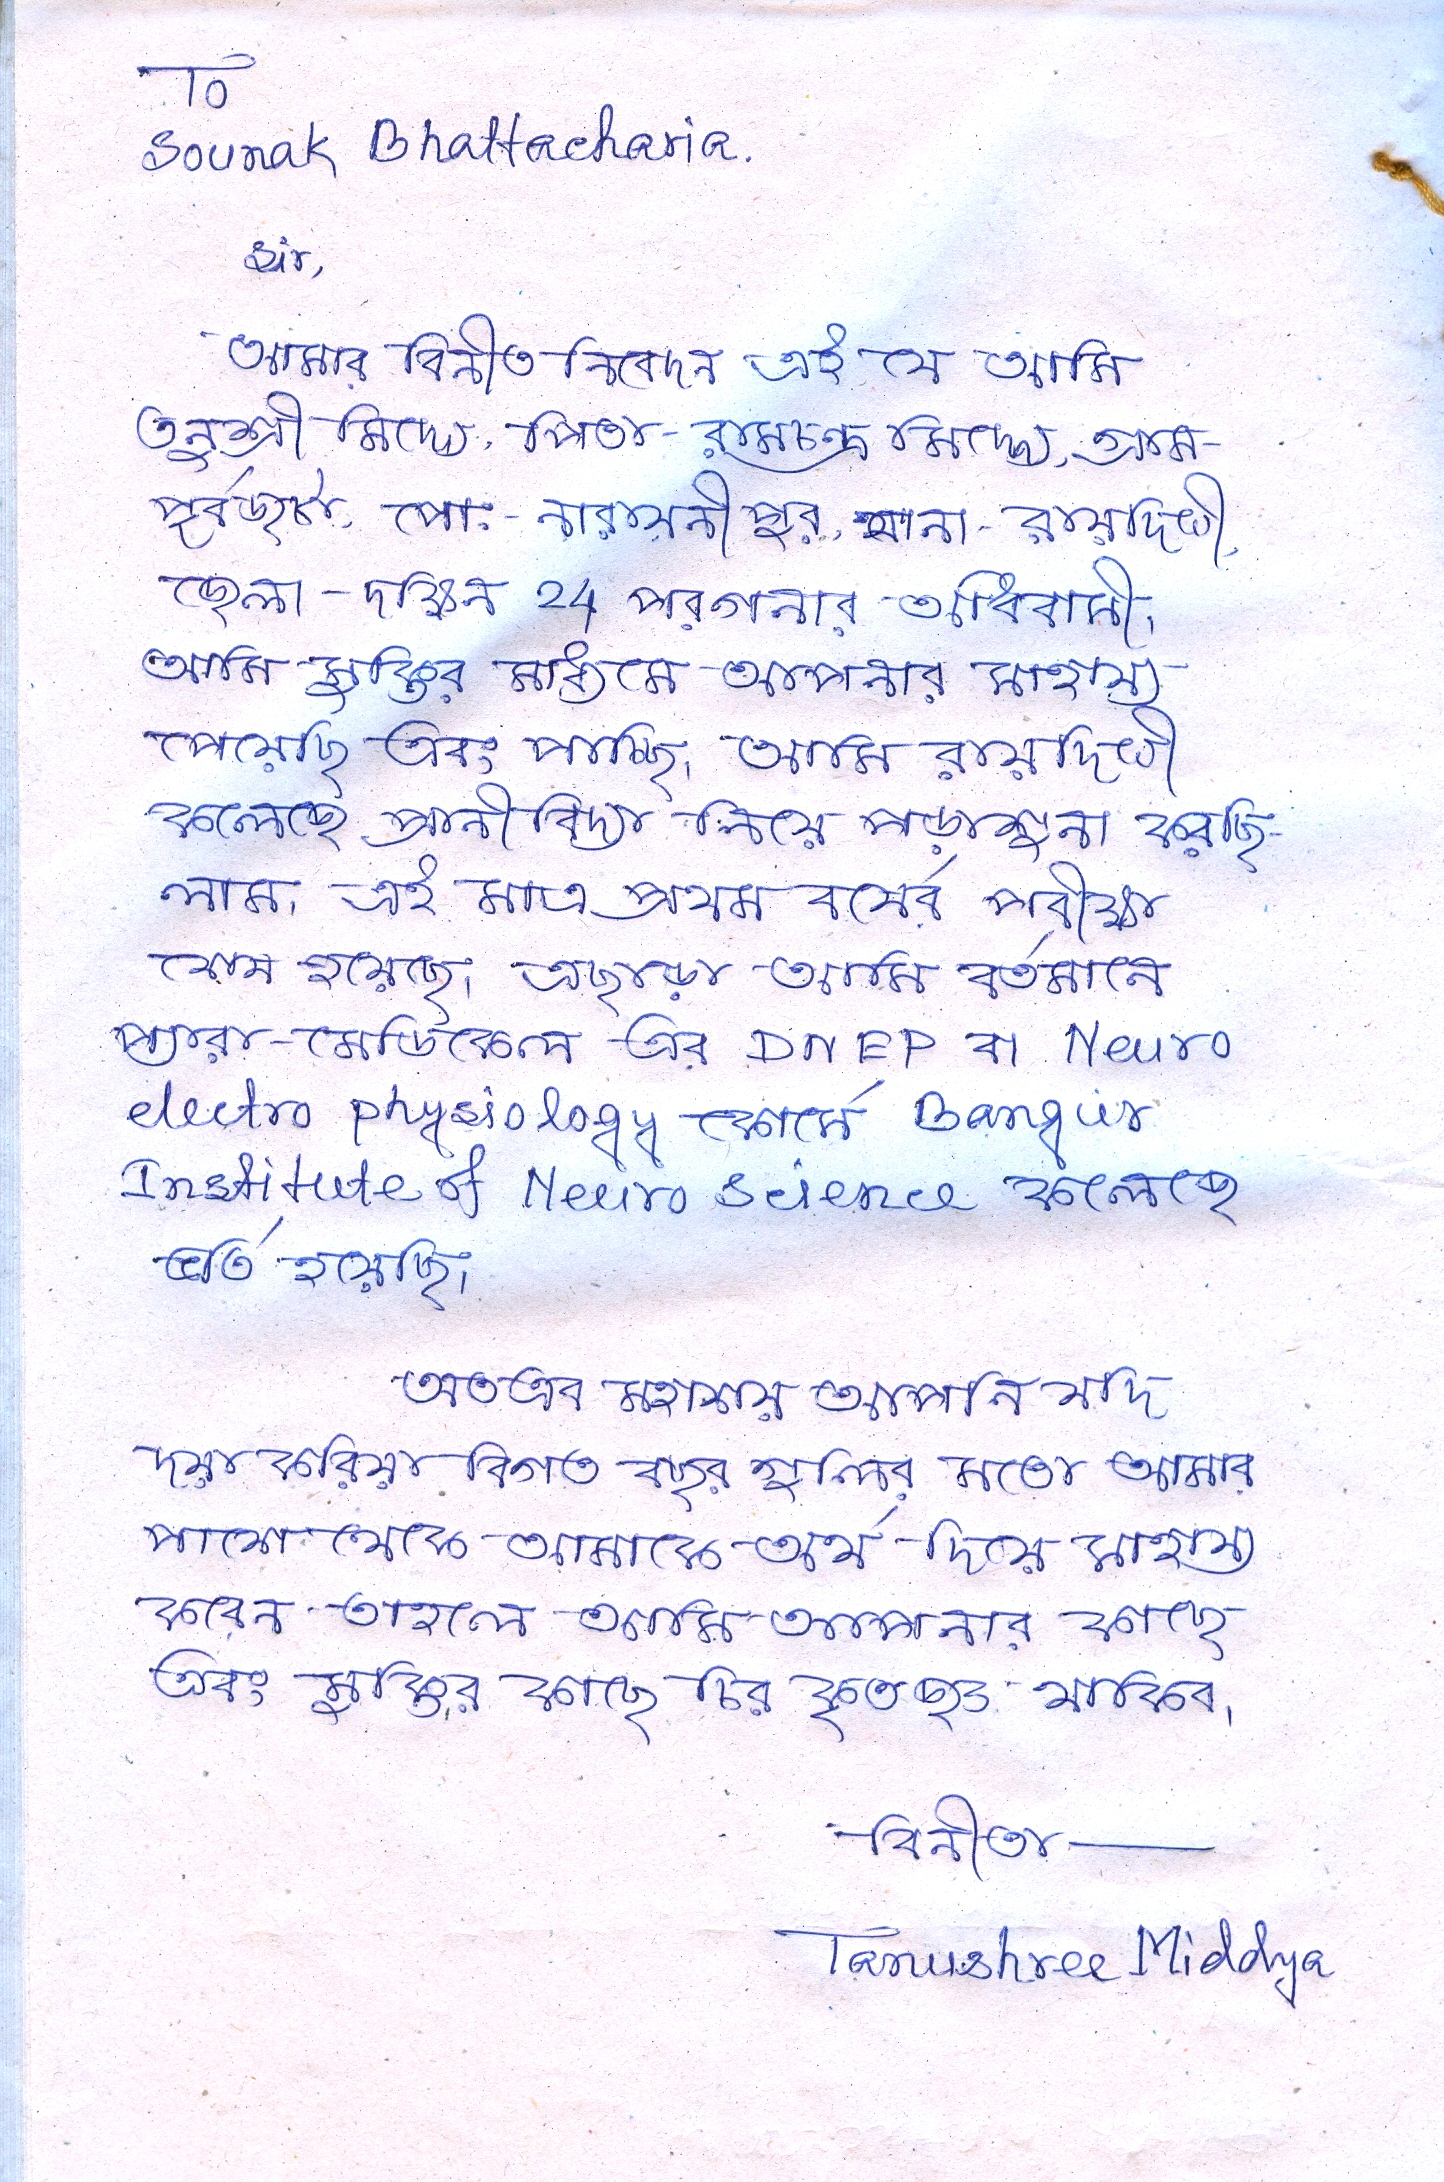 To
Sounak Bhattacharia.
Sir,
আমার বিনীত নিবেদন এই যে আমি
তনুশ্রী মিদ্দ্যে, পিতা - রামচন্দ্র মিদ্দ্যে, গ্রাম-
পূর্বজটা, পোঃ - নারায়নীপুর, থানা - রায়দিঘী,
জেলা - দক্ষিন 24 পরগনার অধিবাসী।
আমি মুক্তির মাধ্যমে আপনার সাহায্য
পেয়েছি এবং পাচ্ছি। আমি রায়দিঘী
কলেজে প্রানীবিদ্যা নিয়ে পড়াশুনা করছি-
লাম। এই মাত্র প্রথম বর্ষের পরীক্ষা
শেষ হয়েছে। এছাড়া আমি বর্তমানে
প্যারা-মেডিকেল এর DNEP বা Neuro
electro physiology কোর্সে Bangur
Institute of Neuro Science কলেজে
ভর্তি হয়েছি।
অতএব মহাশয় আপনি যদি
দয়া করিয়া বিগত বছর গুলির মতো আমার
পাশে থেকে আমাকে অর্থ দিয়ে সাহায্য
করেন তাহলে আমি আপনার কাছে
এবং মুক্তির কাছে চির কৃতজ্ঞ থাকিব।
বিনীতা ——
Tanushree Middya